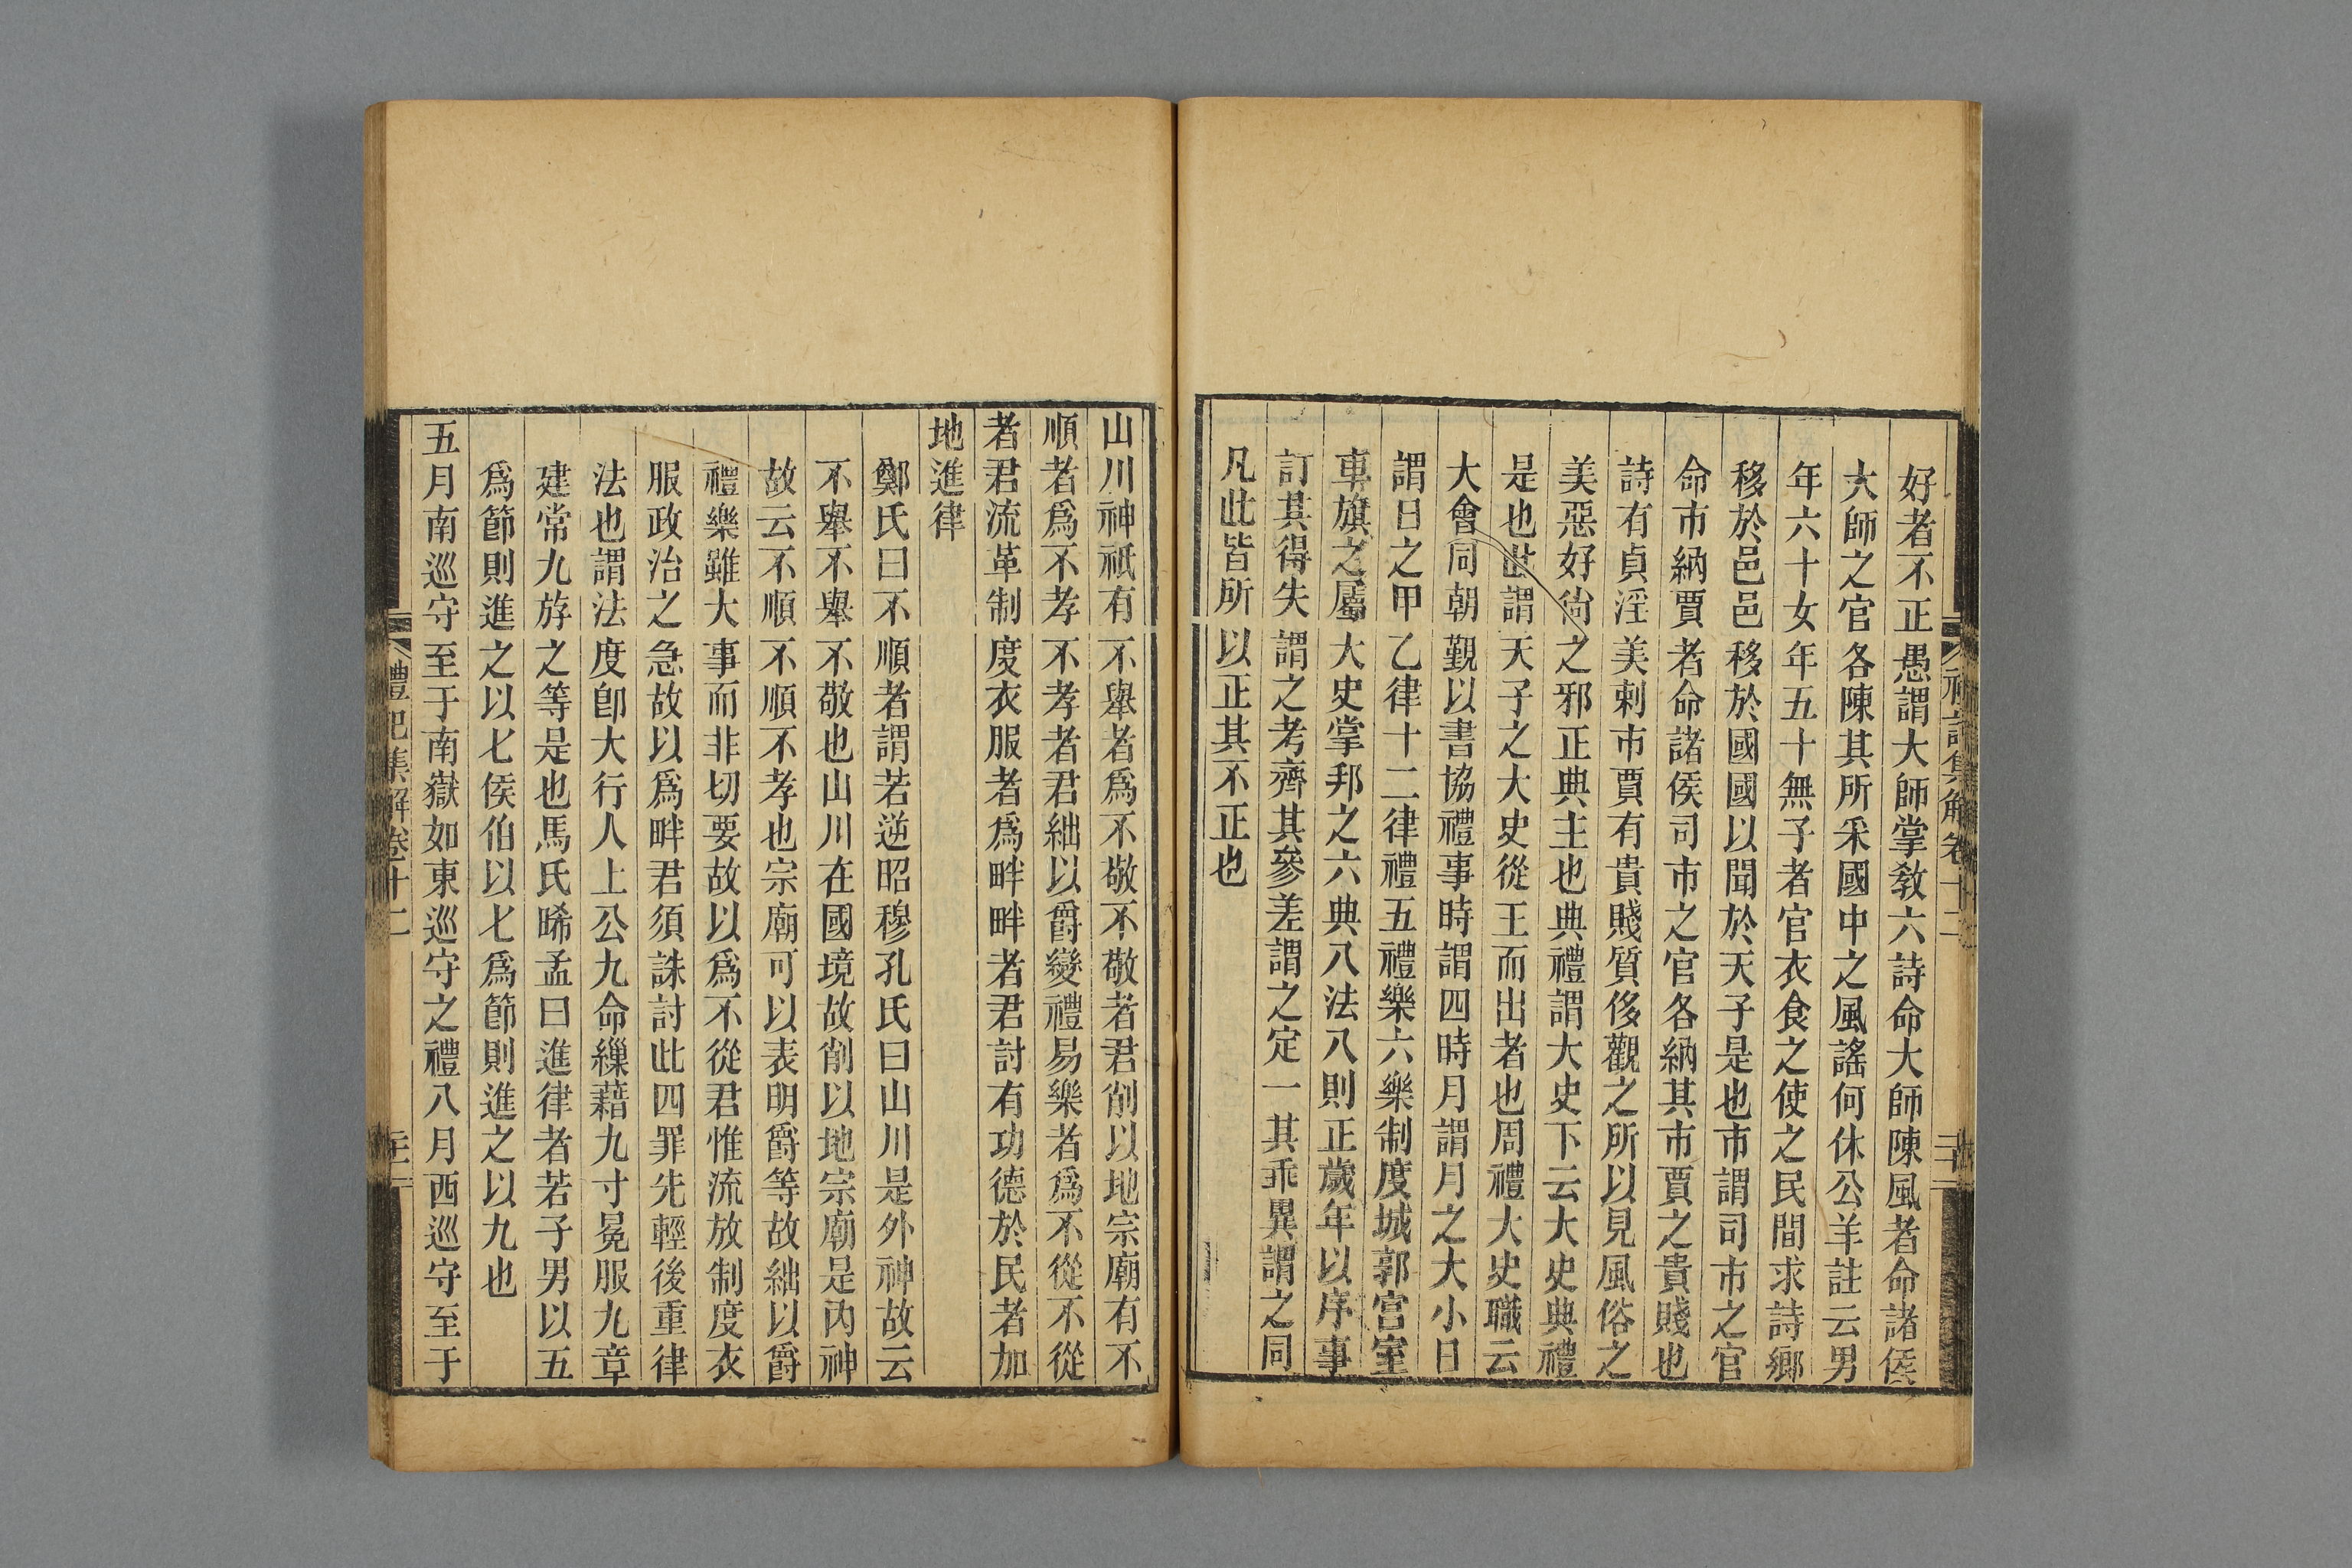 好者不正愚謂大師掌敎六詩命大師陳風者命諸侯
大師之官各陳其所采國中之風謠何休公羊註云男
年六十女年五十無子者官衣食之使之民間求詩鄉
移於邑邑移於國國以聞於天子是也市謂司市之官
命市納賈者命諸侯司市之官各納其市賈之貴賤也
詩有貞淫美刺市賈有貴賤質侈觀之所以見風俗之
美惡好尙之邪正典主也典禮謂大史下云大史典禮
是也此謂天子之大史從王而出者也周禮大史職云
大會同朝覲以書協禮事時謂四時月謂月之大小日
謂日之甲乙律十二律禮五禮樂六樂制度城郭宮室
車旗之屬大史掌邦之六典八法八則正歲年以序事
訂其得失謂之考齊其參差謂之定一其乖異謂之同
凡此皆所以正其不正也
山川神祇有不舉者爲不敬不敬者君削以地宗廟有不
順者爲不孝不孝者君絀以爵變禮易樂者爲不從不從
者君流革制度衣服者爲畔畔者君討有功德於民者加
地進律
鄭氏曰不順者謂若逆昭穆孔氏曰山川是外神故云
不舉不舉不敬也山川在國境故削以地宗廟是內神
故云不順不順不孝也宗廟可以表明爵等故絀以爵
禮樂雖大事而非切要故以爲不從君惟流放制度衣
服政治之急故以爲畔君須誅討此四罪先輕後重律
法也謂法度卽大行人上公九命繅藉九寸冕服九章
建常九斿之等是也馬氏晞孟曰進律者若子男以五
爲節則進之以七侯伯以七爲節則進之以九也
五月南巡守至于南嶽如東巡守之禮八月西巡守至于
禮記集解卷十二